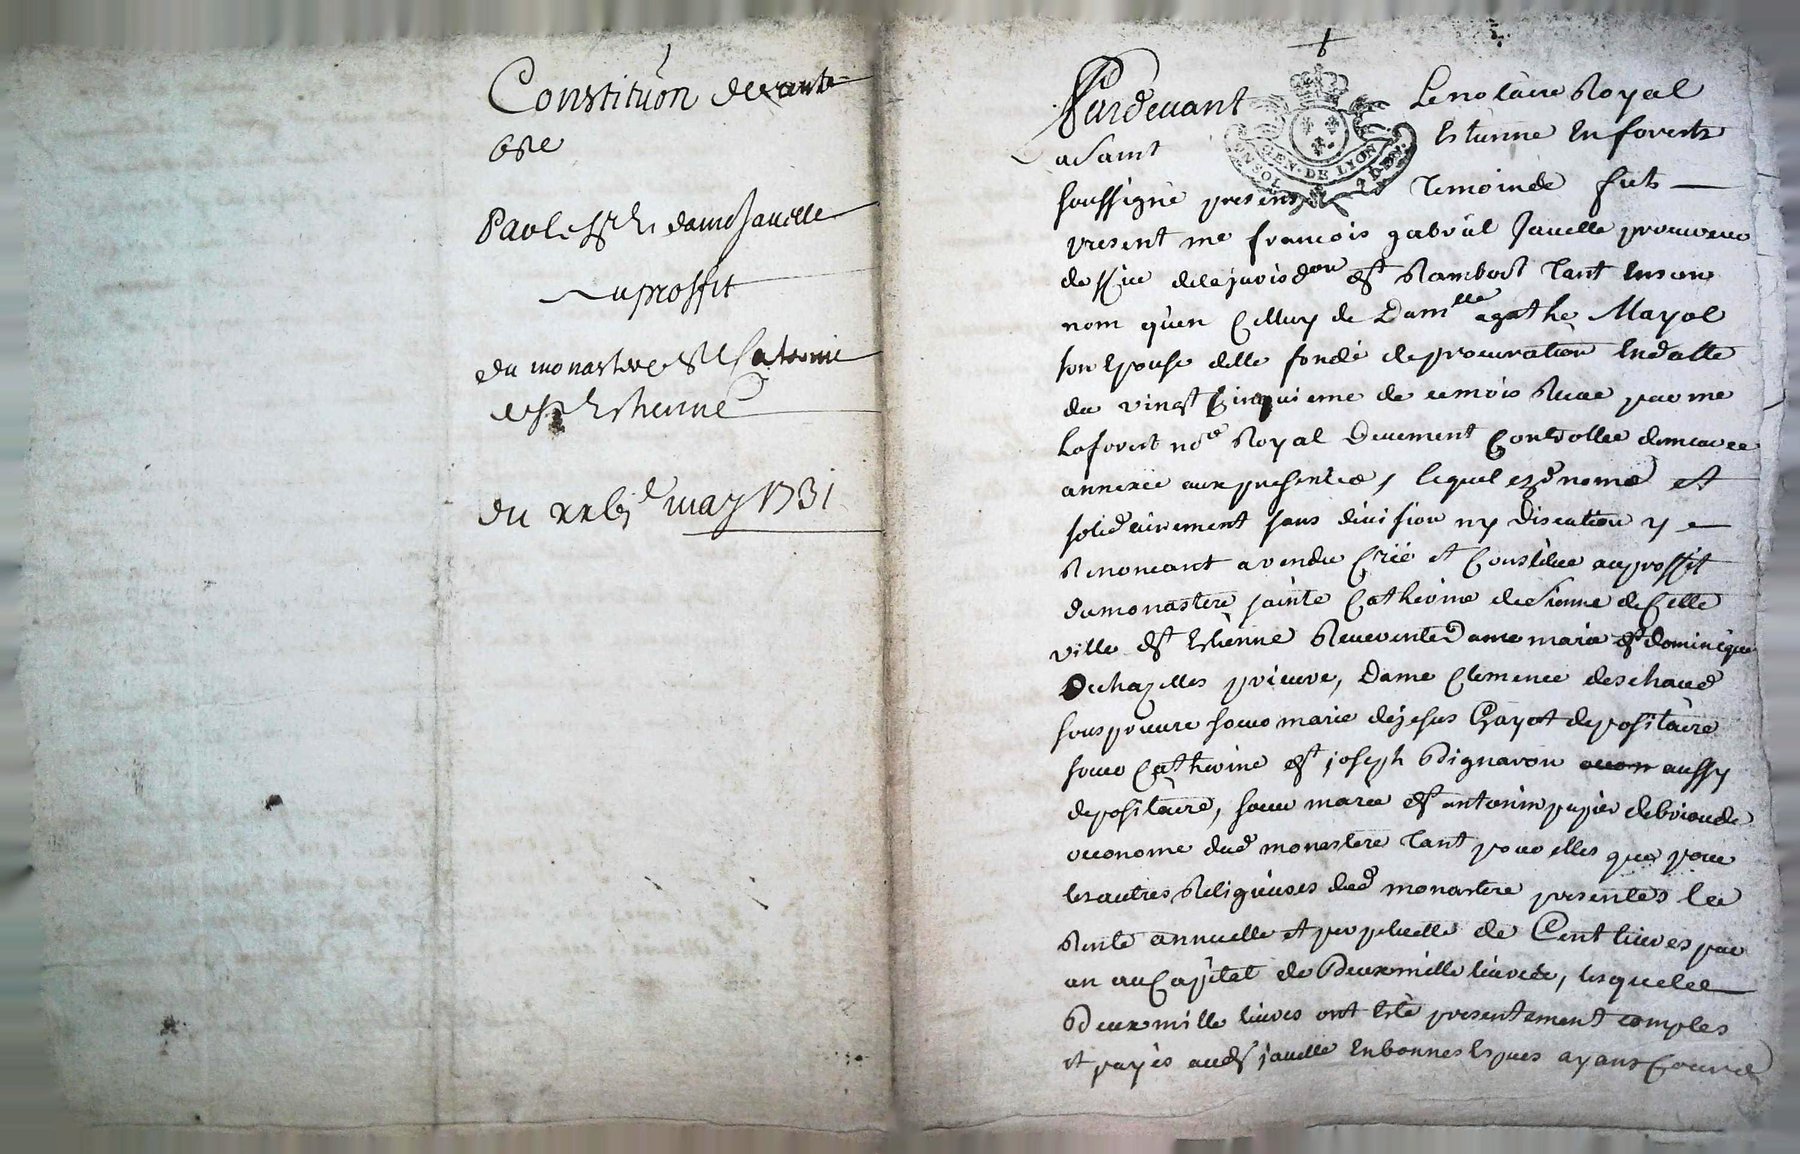 Constitu͠on de rante
Par le Sr & dame Javelle
au proffit
du monastere Ste Catherine
de St Estienne
du xxbje may 1731
Pardevant Le notaire Royal
a Saint Estienne En forests
soussigné presens Temoins de
present me françois gabriel Javelle procureur
doffice de la jurisdon St Rambert Tant En son
nom qu'en Celluy de Damlle agathe Mayol
son Epouse delle fondé de procuration En datte
du vingt Cinquieme de ce mois Recue par me
Laforest nore Royal Deuement Controllee demeuree
annexée aux presentes, lequel esd noms et
solidairement sans division ny discution y
Renoncant a vendu Créé et Constitué au proffit
du monastere sainte Catherine de Sienne de Cette
ville St Estienne Reverente Dame marie St dominique
Dechazelles prieure, Dame Clemence deschaud
sousprieure soeur marie de jesus Gayot depositaire
soeur Catherine St joseph Pignavon aussy
depositaire, soeur marie St antonin papier debrioude
oeconome dud monastere Tant pour elles que pour
les autres Religieuses dud monastere presentes la
Rente annuelle et perpetuelle de Cent livres par
an au Capital de Deux mille livres, lesquelles
Deux mille livres ont Esté presentement comptés
et payés aud Sr javelle En bonnes Espèces ayans Cours
GEN. DE LYON